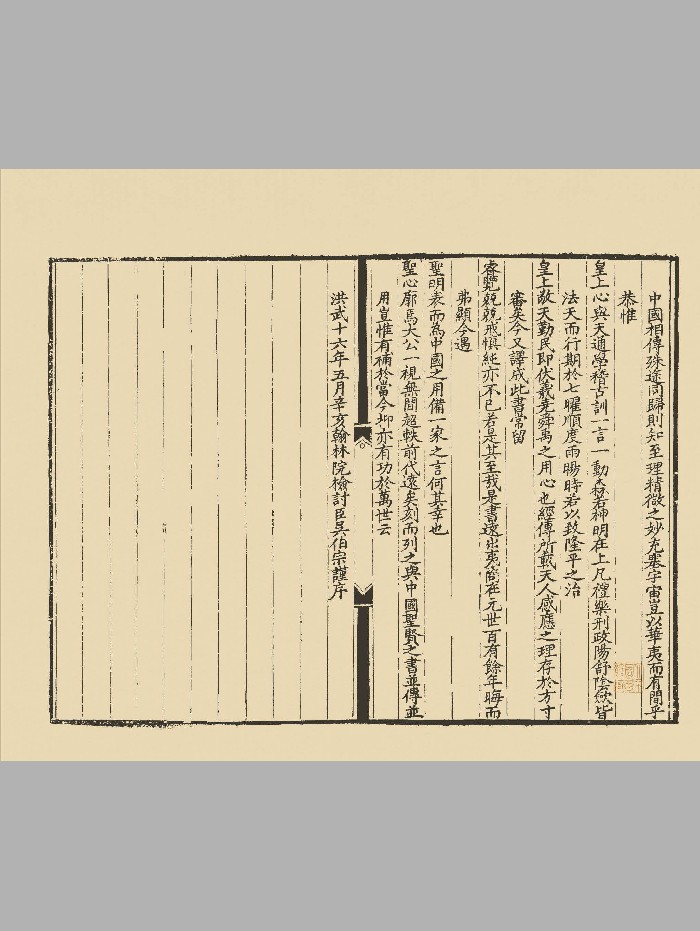 中國相傳殊途同歸則知至理精微之妙充塞宇宙豈以華夷而有間乎
恭惟
皇上心與天通學稽古訓一言一動森若神明在上凡禮樂刑政陽舒陰歛皆
法天而行期於七曜順度雨暘時若以致隆平之治
皇上敬天勤民即伏羲堯舜禹之用心也經傳所載天人感應之理存於方寸
審矣今又譯成此書常留
睿覽兢兢戒慎純亦不已若是其至哉是書遠出夷裔在元世百有餘年晦而
弗顯今遇
聖明表而為中國之用備一家之言何其幸也
聖心廓焉大公一視無間超軼前代遠矣刻而列之與中國聖賢之書並傳並
用豈惟有補於當今抑亦有功於萬世云
洪武十六年五月辛亥翰林院檢討臣吳伯宗謹序